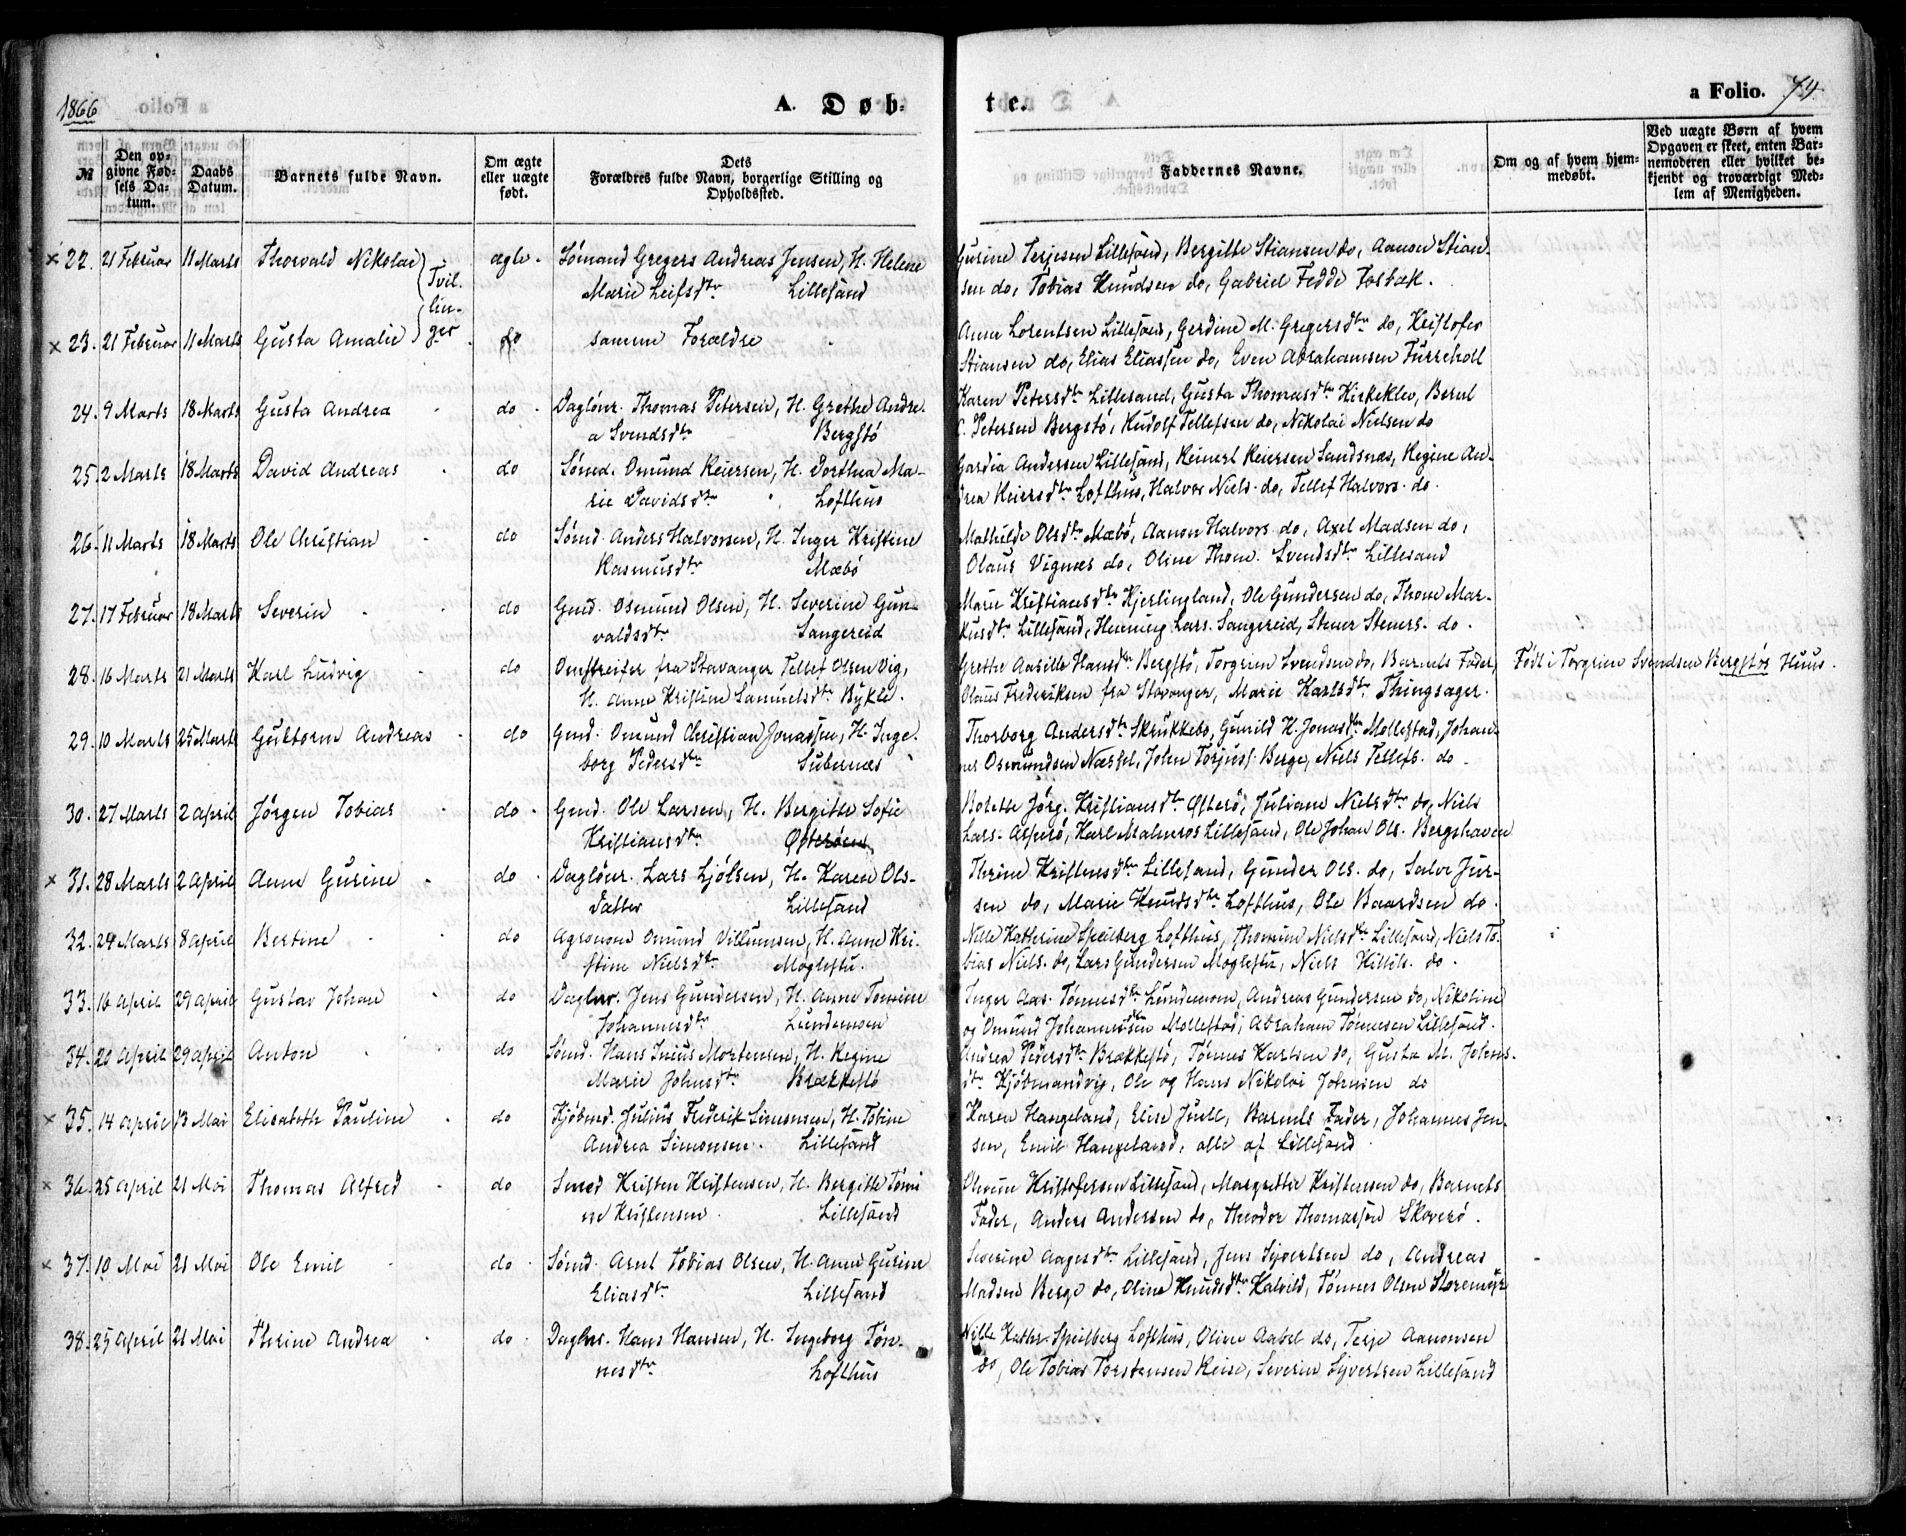 1866
A. Døb-
te.
a Folio. 74
№
Den opgivne Fødsels Datum.
Daabs Datum.
Barnets fulde Navn.
Om ægte eller uægte født.
Dets Forældres fulde Navn, borgerlige Stilling og Opholdssted.
Faddernes Navne.
Om og af hvem hjemmedøbt.
Ved uægte Børn af hvem Opgaven er skeet, enten Barnemoderen eller hvilket bekjendt og troværdigt Medlem af Menigheden.
× 22. 21 Februar 11 Marts Thorvald Nikolai } Tvillinger ægte. Sømand Gregers Andreas Jensen, H. Helene
Marie Leifsdtr Lillesand
Gurine Terjesen Lillesand, Bergitte Stiansen do, Aanon Stian-
sen do, Tobias Knudsen do, Gabriel Fedde Fosbæk.
× 23. 21 Februar 11 Marts Gusta Amalie do samme Forældre
Anne Lorentsen Lillesand, Gerdine M. Gregersdtr do, Kristofer
Stiansen do, Elias Eliassen do, Even Abrahamsen Furreholl
24. 9 Marts 18 Marts Gusta Andrea do Dagløner. Thomas Petersen, H. Grethe Andre-
a Svendsdtr Bergstø
Karen Petersdtr Lillesand, Gusta Thomasdtr Kirkeklev, Bernt
C. Petersen Bergstø, Rudolf Tellefsen do, Nikolai Nielsen do
25. 2 Marts 18 Marts David Andreas do Sømd. Omund Reiersen, H. Dorthea Ma-
rie Davidsdtr Lofthus
Gardia Andersen Lillesand, Reinert Reiersen Sandsnæs, Regine An-
drea Reiersdtr Lofthus, Halvor Niels. do, Tellef Halvors. do.
26. 11 Marts 18 Marts Ole Christian do Sømd. Anders Halvorsen, H. Inger Kristine
Rasmusdtr Mæbø
Mathilde Olsdtr Mæbø, Aanon Halvors do, Axel Madsen do,
Olaus Vignæs do, Oline Thom. Svendsdtr Lillesand
27. 17 Februar 18 Marts Severin do Gmd. Osmund Olsen, H. Severine Gun-
valdsdtr Sangereid
Marie Kristiansdtr Kjerlingland, Ole Gundersen do, Thone Mar-
kusdtr Lillesand, Henning Lars. Sangereid, Stener Steners. do.
28. 16 Marts 21 Marts Karl Ludvig do Omstreifer fra Stavanger Tellef Olsen Vig,
H. Anne Kristine Samuelsdtr Bykle.
Grethe Aasille Hansdtr Bergstø, Torgrim Svendsen do, Barnets Fader,
Olaus Frederiksen fra Stavanger, Marie Karlsdtr Thingsager.
Født i Torgrim Svendsen Bergstøs Huus.
29. 10 Marts 25 Marts Guttorm Andreas do Gmd. Omund Christian Jonassen, H. Inge-
borg Pedersdtr Subernæs
Thorborg Andersdtr Skrukkebo, Gunild H. Jonasdtr Mollestad, Johan-
nes Osmundsen Næssel, John Torjuss. Berge, Niels Tellefs. do.
30. 27 Marts 2 April Jørgen Tobias do. Gmd. Ole Larsen, H. Bergitte Sofie
Kristiansdtr Østerøen.
Rosette Jørg. Kristiansdtr Østerø, Juliane Nielsdtr do, Niels
Lars. Asperø, Karl Malmros Lillesand, Ole Johan Ols. Bergshaven
× 31. 28 Marts 2 April Anne Gurine do. Dagløner. Lars Ljølsen, H. Karen Ols-
datter Lillesand
Thrine Kristensdtr Lillesand, Gunder Ols. do, Salve Jur-
sen do, Marie Knudsdtr Lofthus, Ole Baardsen do.
32. 24 Marts 8 April Bertine do Agronom Omund Villumsen, H. Anne Kri-
stine Nielsdtr Møglestu.
Nille Kathrine Speilberg Lofthus, Thomine Nielsdtr Lillesand, Niels To-
bias Niels. do, Lars Gundersen Møglestu, Niels Hillels. do.
33. 16 April 29 April Gustav Johan do Daglnr. Jens Gundersen, H. Anne Tomine
Johannesdtr Lundemoen
Inger Aas. Tønnesdtr Lundemoen, Andreas Gundersen do, Nikoline
og Omund Johannessen Mollestad, Abraham Tønnesen Lillesand.
34. 20 April 29 April Anton do Sømd. Hans Inius Mortensen, H. Regine
Marie Johnsdtr Brækkestø
Andrea Pedersdtr Brækkestø, Tønnes Karlsen do, Gusta M. Johns-
dtr Kjøbmandvig, Ole og Hans Nikolai Johnsen do
× 35. 14 April 13 Mai Elisabeth Pauline do Kjøbmd. Julius Frederik Simonsen, H. Tobine
Andrea Simonsen. Lillesand
Karen Hangeland, Elise Juell, Barnets Fader, Johannes Jen-
sen, Emil Hangeland, alle af Lillesand
× 36. 25 April 21 Mai Thomas Alfred do Smed Kristen Kristensen, H. Bergitte Tomi-
ne Kristensen. Lillesand
Kristofersen Lillesand, Margrethe Kristensen do, Barnets
Fader, Anders Andersen do, Theodor Thomassen Skoverø.
× 37. 10 Mai 21 Mai Ole Emil do. Sømd. Arnt Tobias Olsen, H. Anne Gurine
Eliasdtr Lillesand
Severine Aagesdtr Lillesand, Jens Syvertsen do, Andreas
Madsen Berge do, Oline Knudsdtr Kalvild, Tønnes Olsen Storemyr
38. 25 April 21 Mai Thrine Andrea do. Daglnr. Hans Hansen, H. Ingeborg Tøn-
nesdtr Lofthus
Nille Kathr. Speilberg Lofthus, Oline Aabel do, Terje Aanonsen
do, Ole Tobias Torstensen Reise, Severin Syvertsen Lillesand